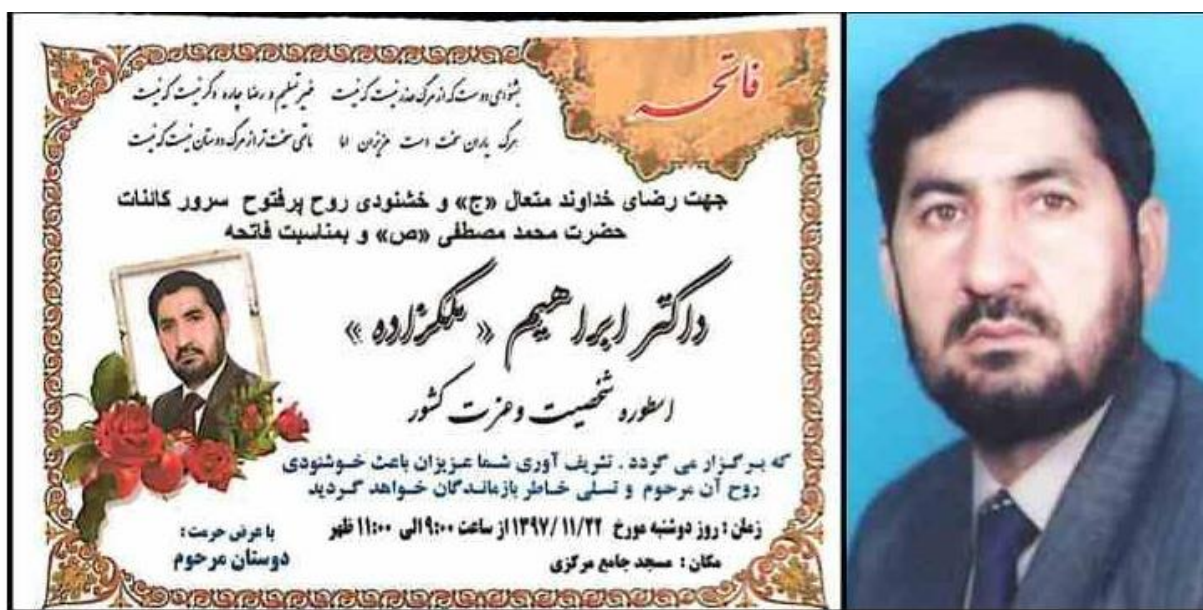 فاتحه
بشنو ای دوست که از مرگ حذر نیست که نیست غیر تسلیم و رضا چاره دگر نیست که نیست
مرگ یاران سخت است عزیزان اما ماتمی سخت تر از مرگ دوستان نیست که نیست
جهت رضای خداوند متعال «ج» و خشنودی روح پرفتوح سرور کائنات
حضرت محمد مصطفی «ص» و بمناسبت فاتحه
داکتر ابراهیم « ملکزاده »
اسطوره شخصیت و عزت کشور
که برگزار می گردد . تشریف آوری شما عزیزان باعث خوشنودی
روح آن مرحوم و تسلی خاطر بازماندگان خواهد گردید
زمان : روز دوشنبه مورخ ۱۳۹۷/۱۱/۲۲ از ساعت ۹:۰۰ الی ۱۱:۰۰ ظهر
مکان : مسجد جامع مرکزی
با عرض حرمت :
دوستان مرحوم